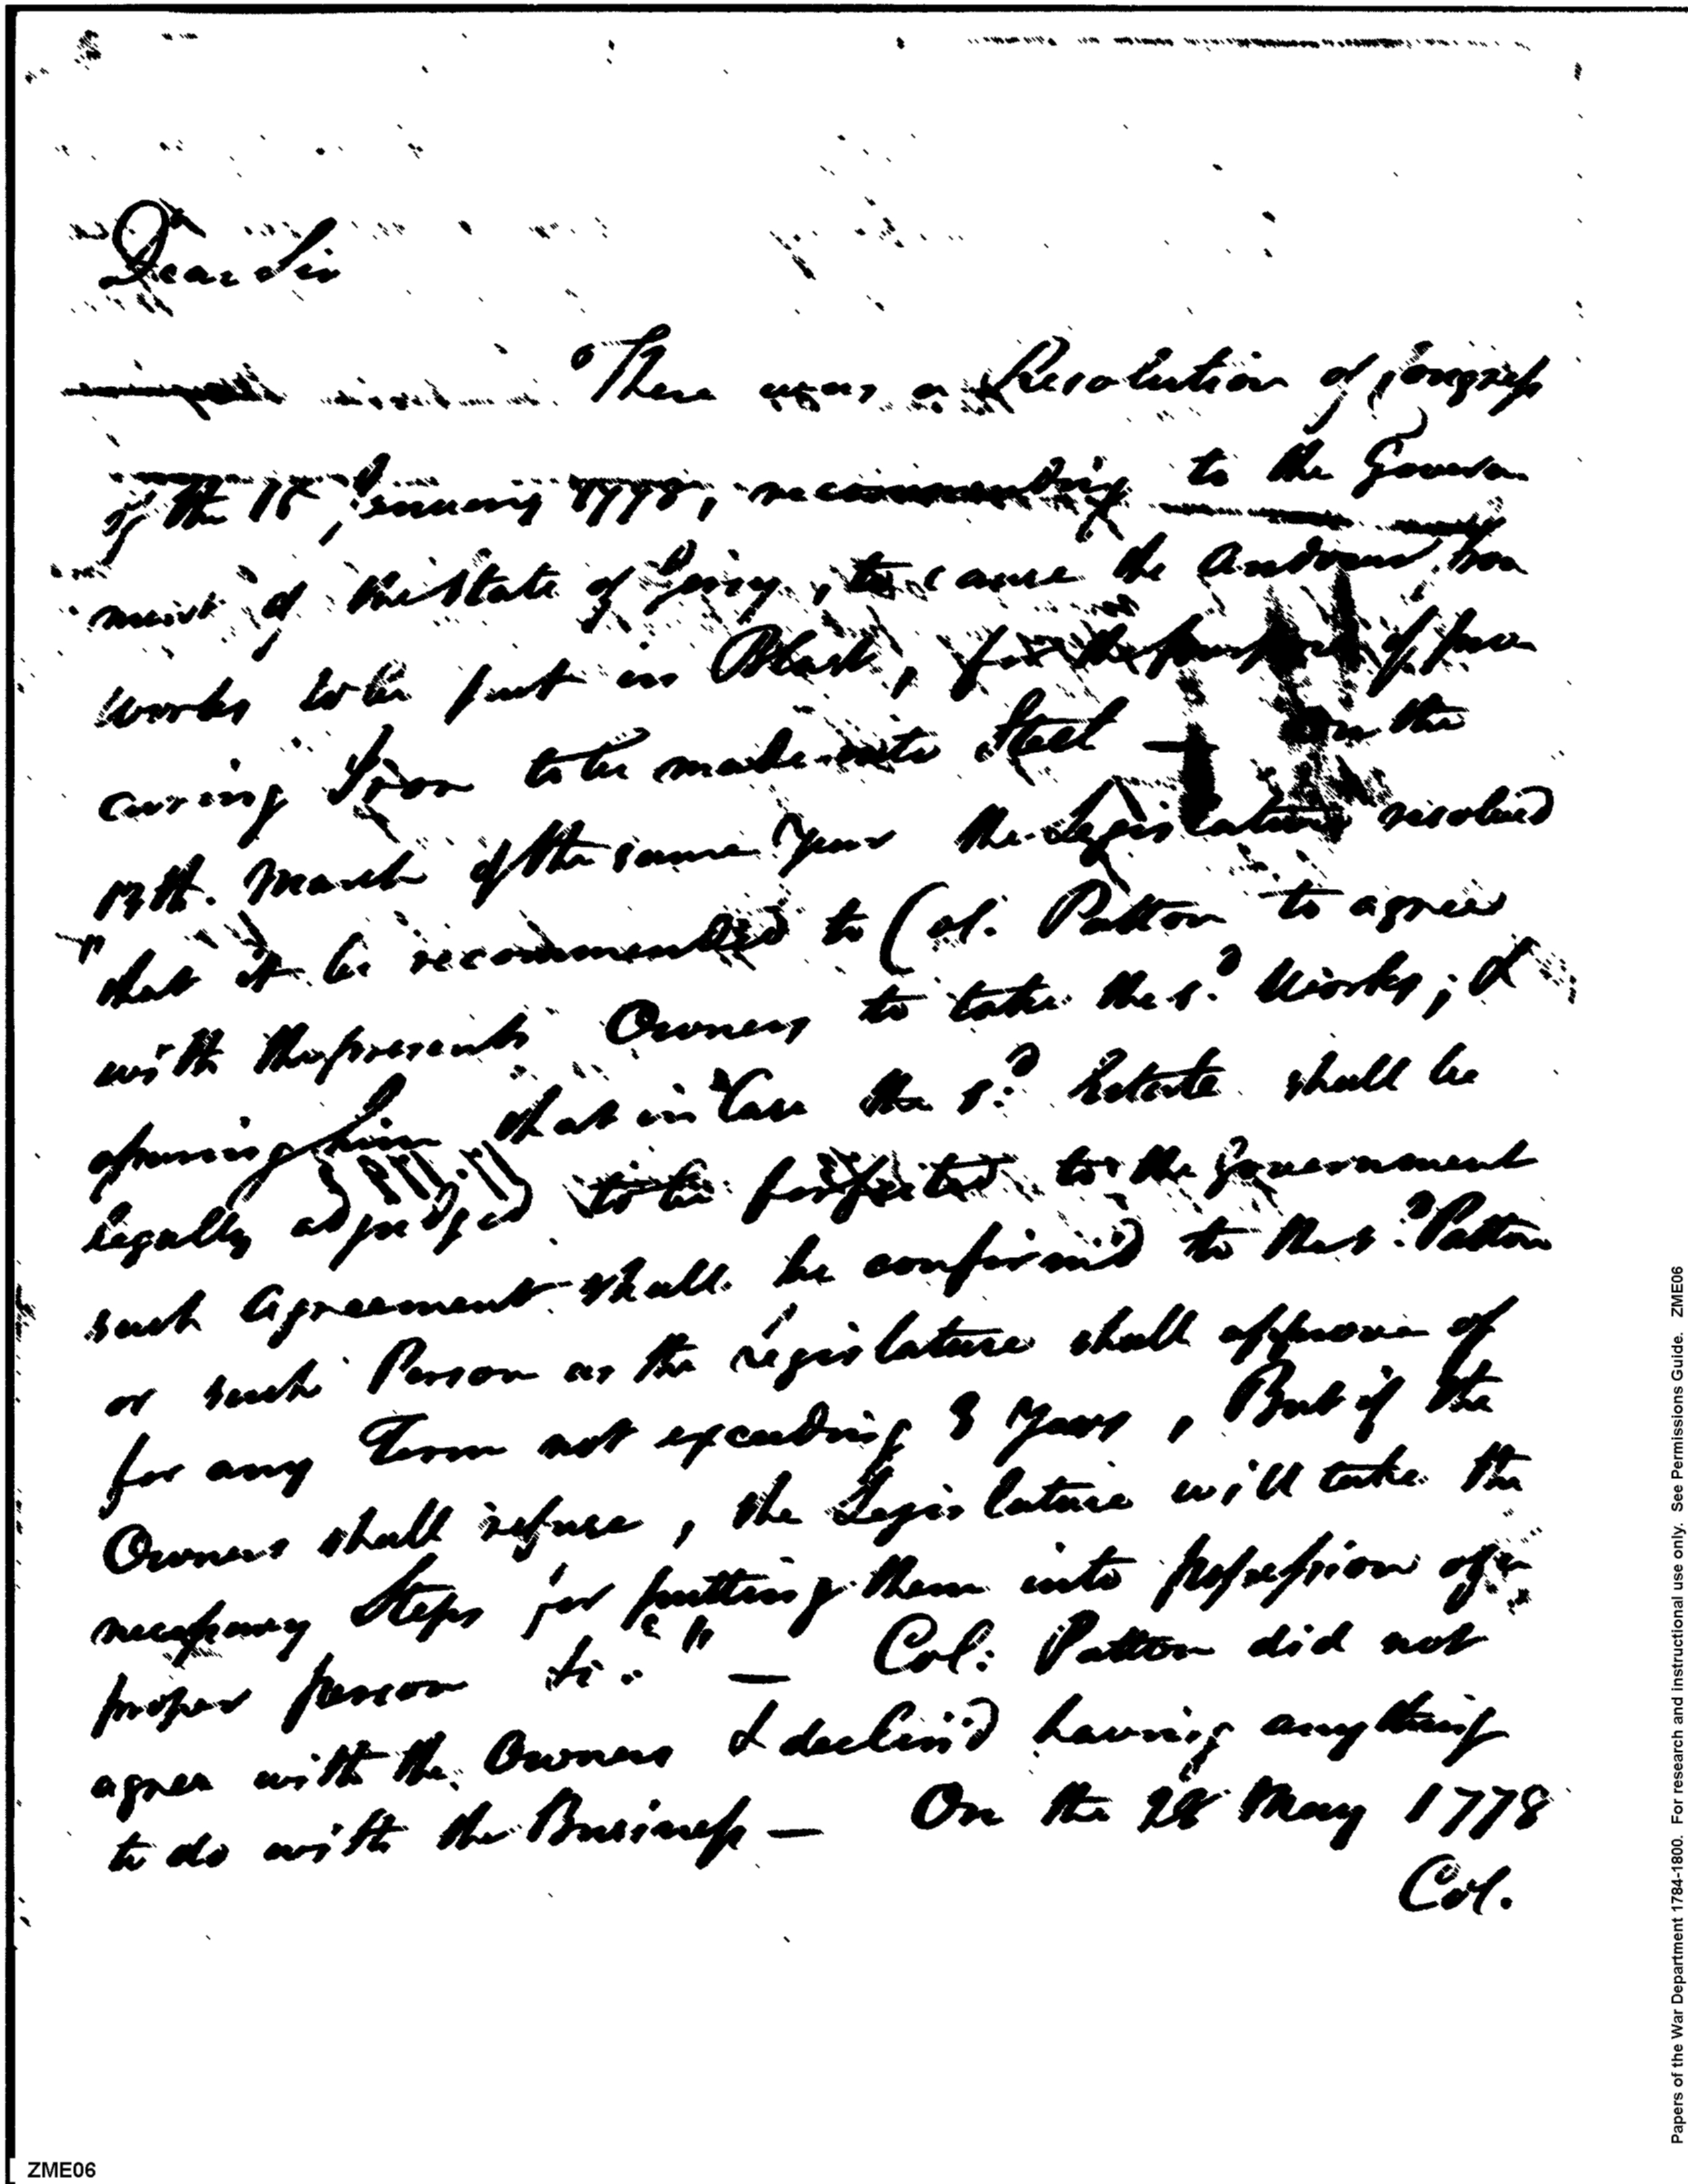 Dear Sir
There was a Resolution of Congress
of the 15 January 1778, recommending to the Govern
ment of the State of Jersey, to cause the Andover Iron
Works to be put in Blast, for the purpose of pro
curing Iron to be made into Steel — On the
17th. March of the same Year the Legislature resolved
"that it be recommended to Col. Patton to agree
with the present Owners to take the sd. Works; &
assuring him that in Case the sd. Estate shall be
legally adjudged to be forfeited to the Government
such Agreement shall be confirmed to the sd. Patton
or such Person as the Legislature shall approve of
for any Term not exceeding 3 Years, But if the
Owners shall refuse, the Legislature will take the
necessary Steps for putting them into possession of a
proper person &c." — Col: Patton did not
agree with the Owners & declin'd having any thing
to do with the Business — On the 28 May 1778
Col.
ZME06
Papers of the War Department 1784-1800. For research and instructional use only. See Permissions Guide. ZME06